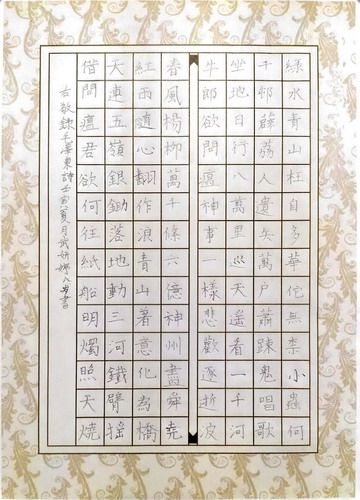 綠水青山枉自多華佗無柰小蟲何
千邨薜荔人遺矢萬户蕭疎鬼唱歌
坐地日行八萬里巡天遥看一千河
牛郎欲問瘟神事一樣悲歡逐逝波
春風楊柳萬千條六億神州盡舜堯
紅雨隨心翻作浪青山著意化為橋
天連五嶺銀鋤落地動三河鐵臂摇
借問瘟君欲何往紙船明燭照天燒
右敬録毛澤東詩壬寅夏月武妍娜八岁書